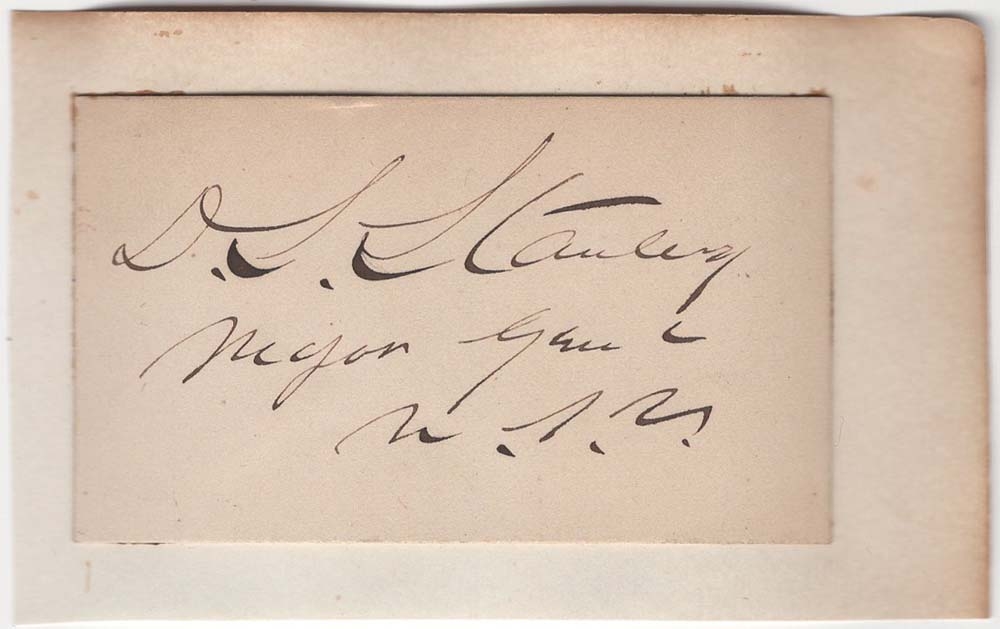 D. S. Stanley
Major Genl
U. S. V.